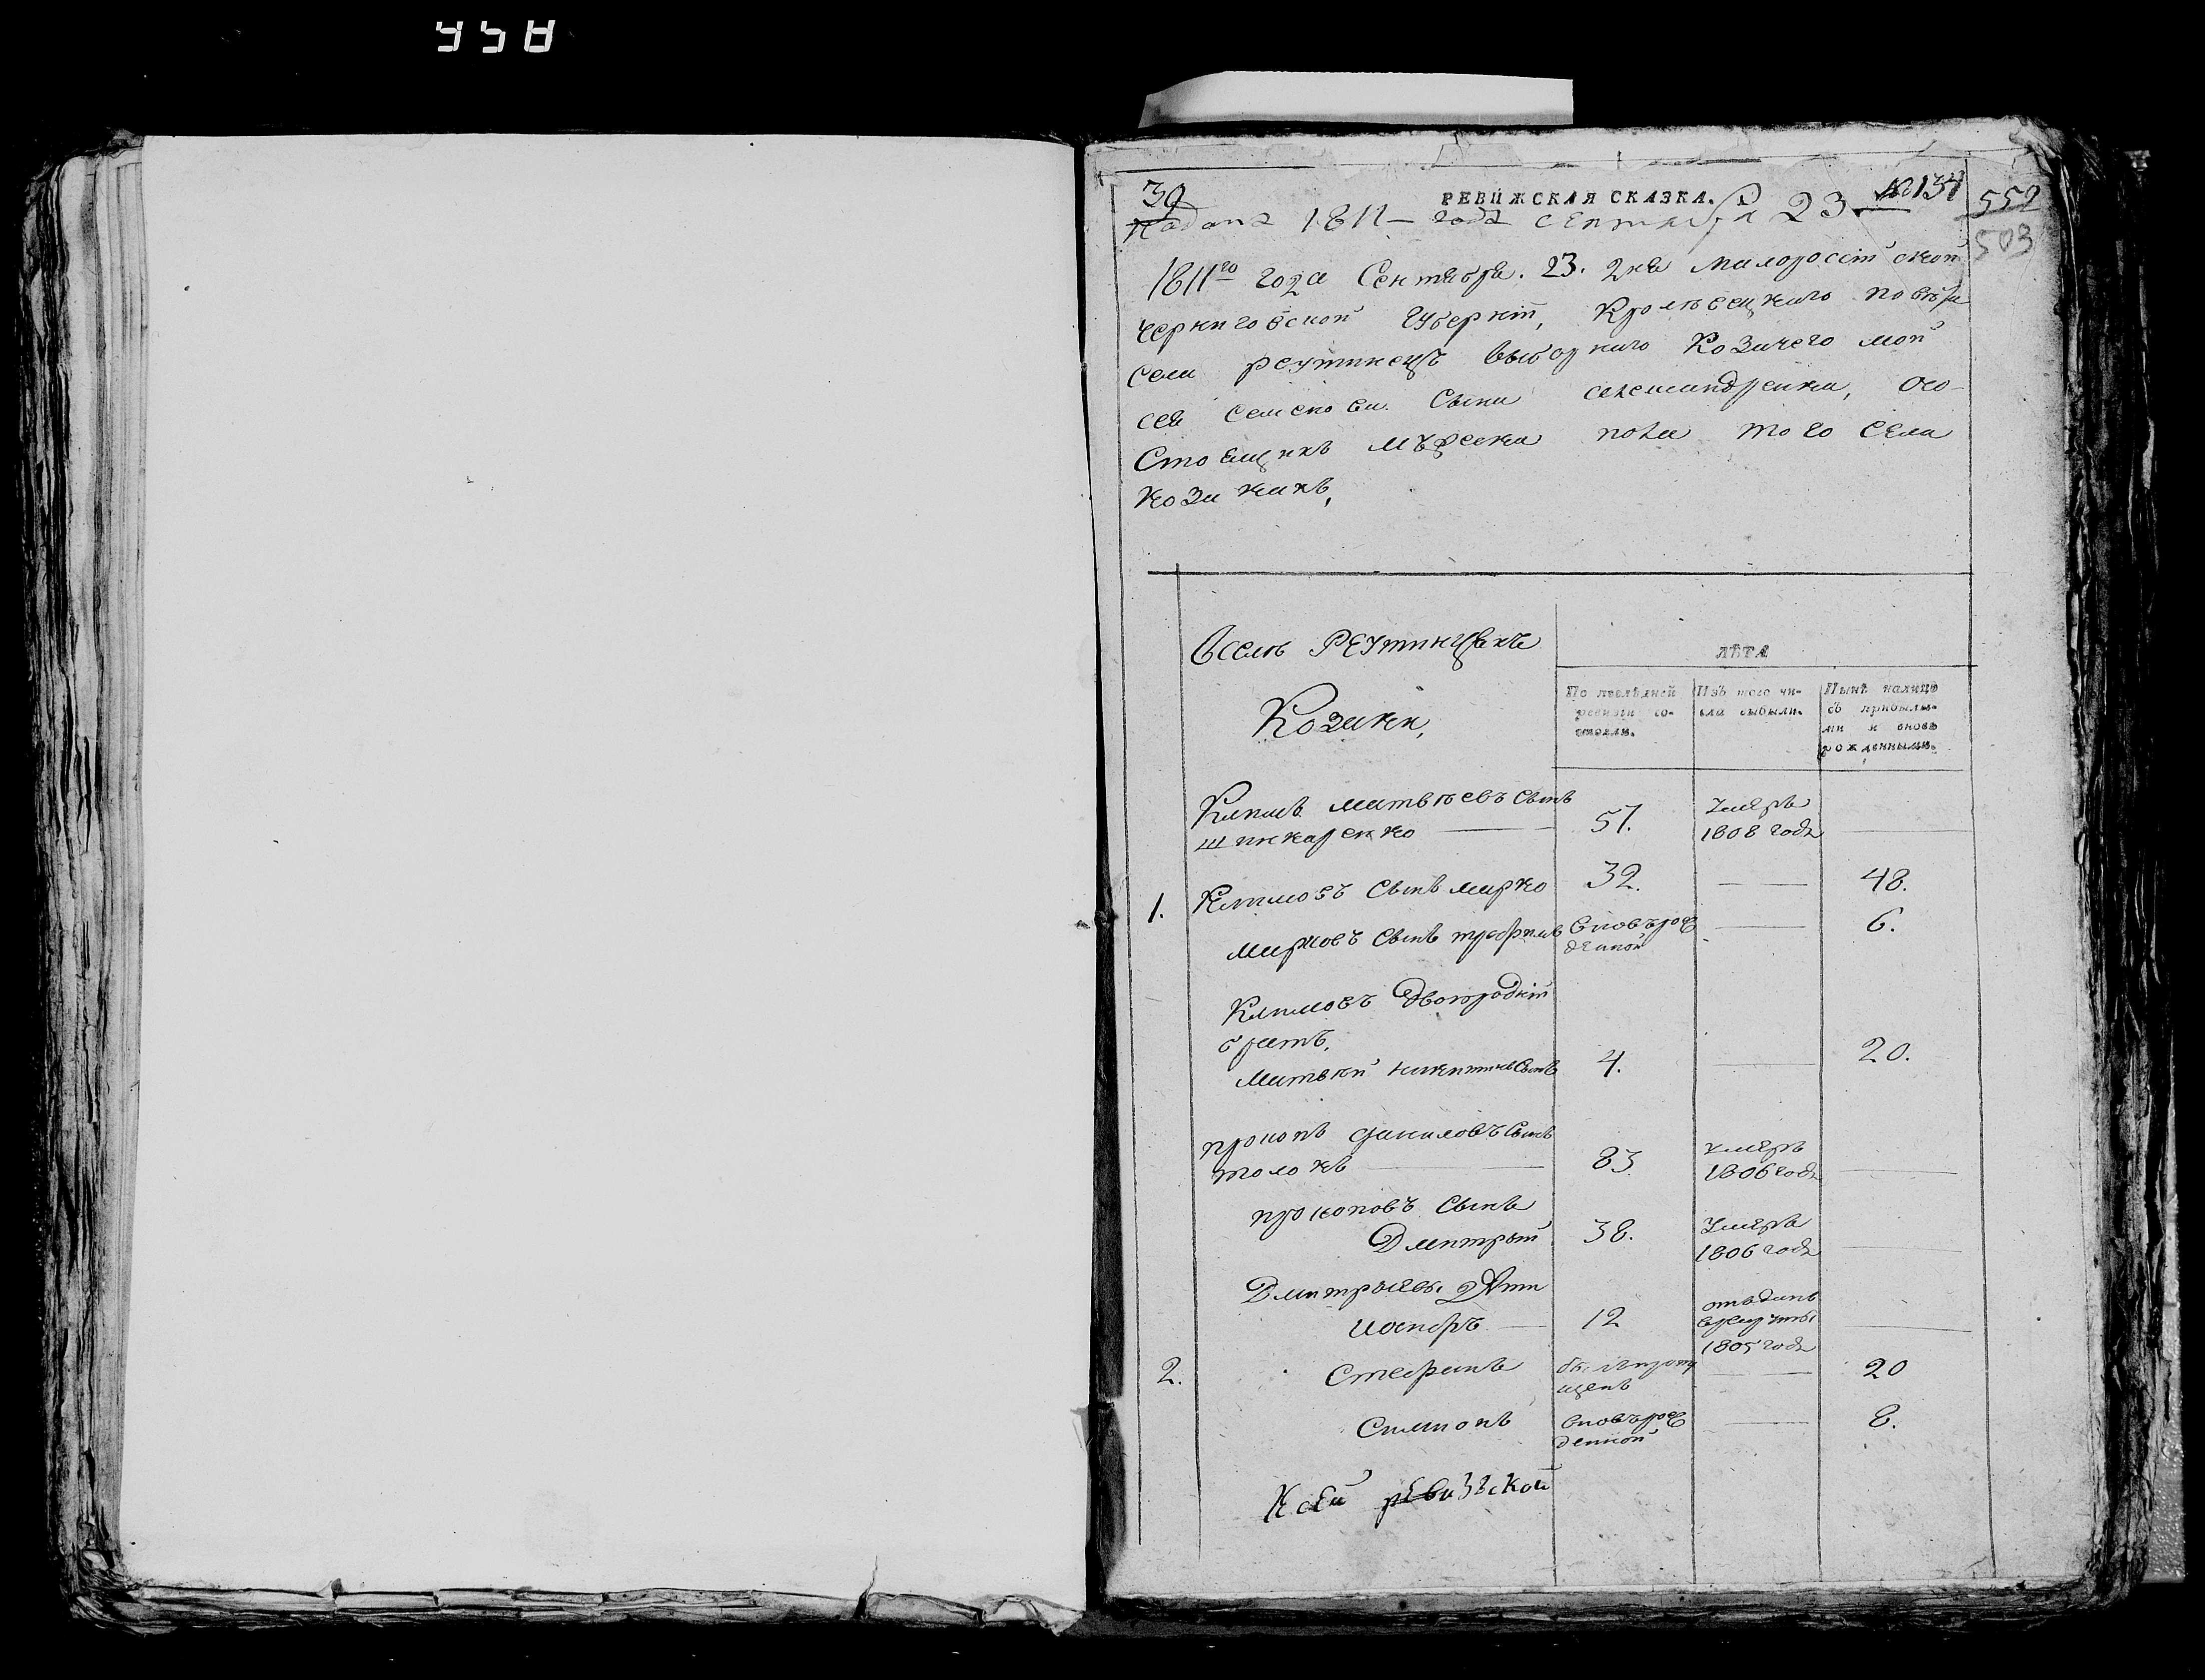 958
РЕВИЖСКАЯ СКАЗКА.
№ 134
30
552
503
Подана 1811 года сентября 23
1811го года Сентября. 23. дня Малоросiйской
Черниговской Губернiи, Кролевецкого повѣта
села реутинецъ выборного Козачего мой
сея семенова сына александренка, осо-
Стоящихъ мужеска пола того села
козакахъ,
Вселѣ РЕутинцяхъ
Козаки,
ЛѢТА
По послѣдней ревизiи со-стояли.
Изъ того чи-сла выбыли.
Нынѣ налицо съ прибылы-ми и вновь рожденными.
Климъ матвѣевъ сынъ
шинкаренко 51. умеръ 1808 года
1. Климовъ сынъ марко 32. 48.
Марковъ сынъ трофимъ вновърож денной 6.
Климовъ двоюроднiй
братъ,
Матвѣй никитинъ сынъ 4. 20.
прокопъ даниловъ сынъ
толокъ 83 умеръ 1806 года
прокоповъ сынъ
Дмитрый 38. умеръ 1806 года
Дмитрыевы дѣти
иосифъ 12 отъданъ врекруты 1805 года
2. Стефанъ былъ пропу щенъ 20
Симонъ вновърож денной 8.
Ксей ревизской